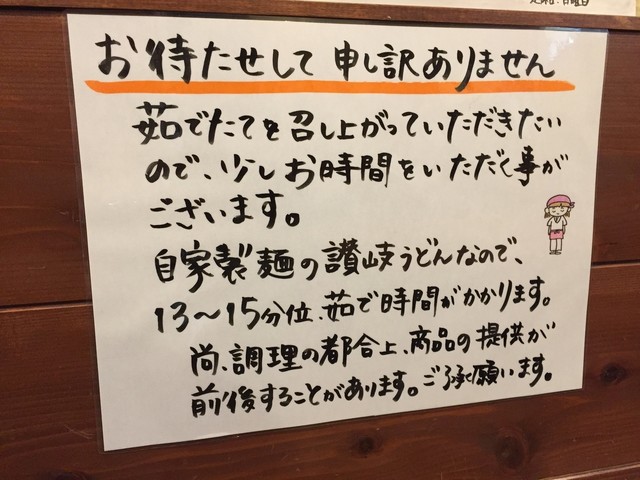 定休日：日曜日
お待たせして 申し訳ありません
茹でたてを召し上がっていただきたい
ので、少しお時間をいただく事が
ございます。
自家製麺の讃岐うどんなので、
13〜15分位、茹で時間がかかります。
尚、調理の都合上、商品の提供が
前後することがあります。ご了承願います。